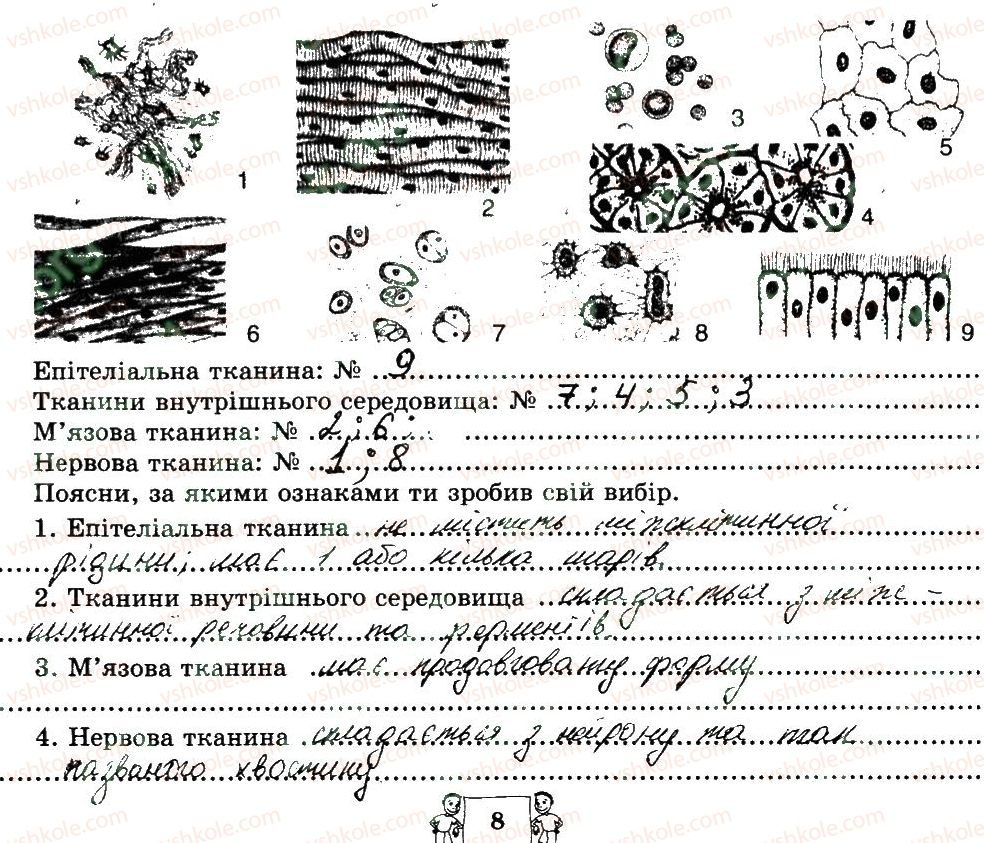 1
2
3
5
4
6
7
8
9
Епітеліальна тканина: № 9
Тканини внутрішнього середовища: № 7; 4; 5; 3
М’язова тканина: № 2; 6;
Нервова тканина: № 1; 8
Поясни, за якими ознаками ти зробив свій вибір.
1. Епітеліальна тканина не містить міжклітинної
рідини; має 1 або кілька шарів.
2. Тканини внутрішнього середовища складається з між-
клітинної речовини та
3. М’язова тканина має продовговату форму
4. Нервова тканина складається з нейрону та так
названого хвостику
8
vshkole.com